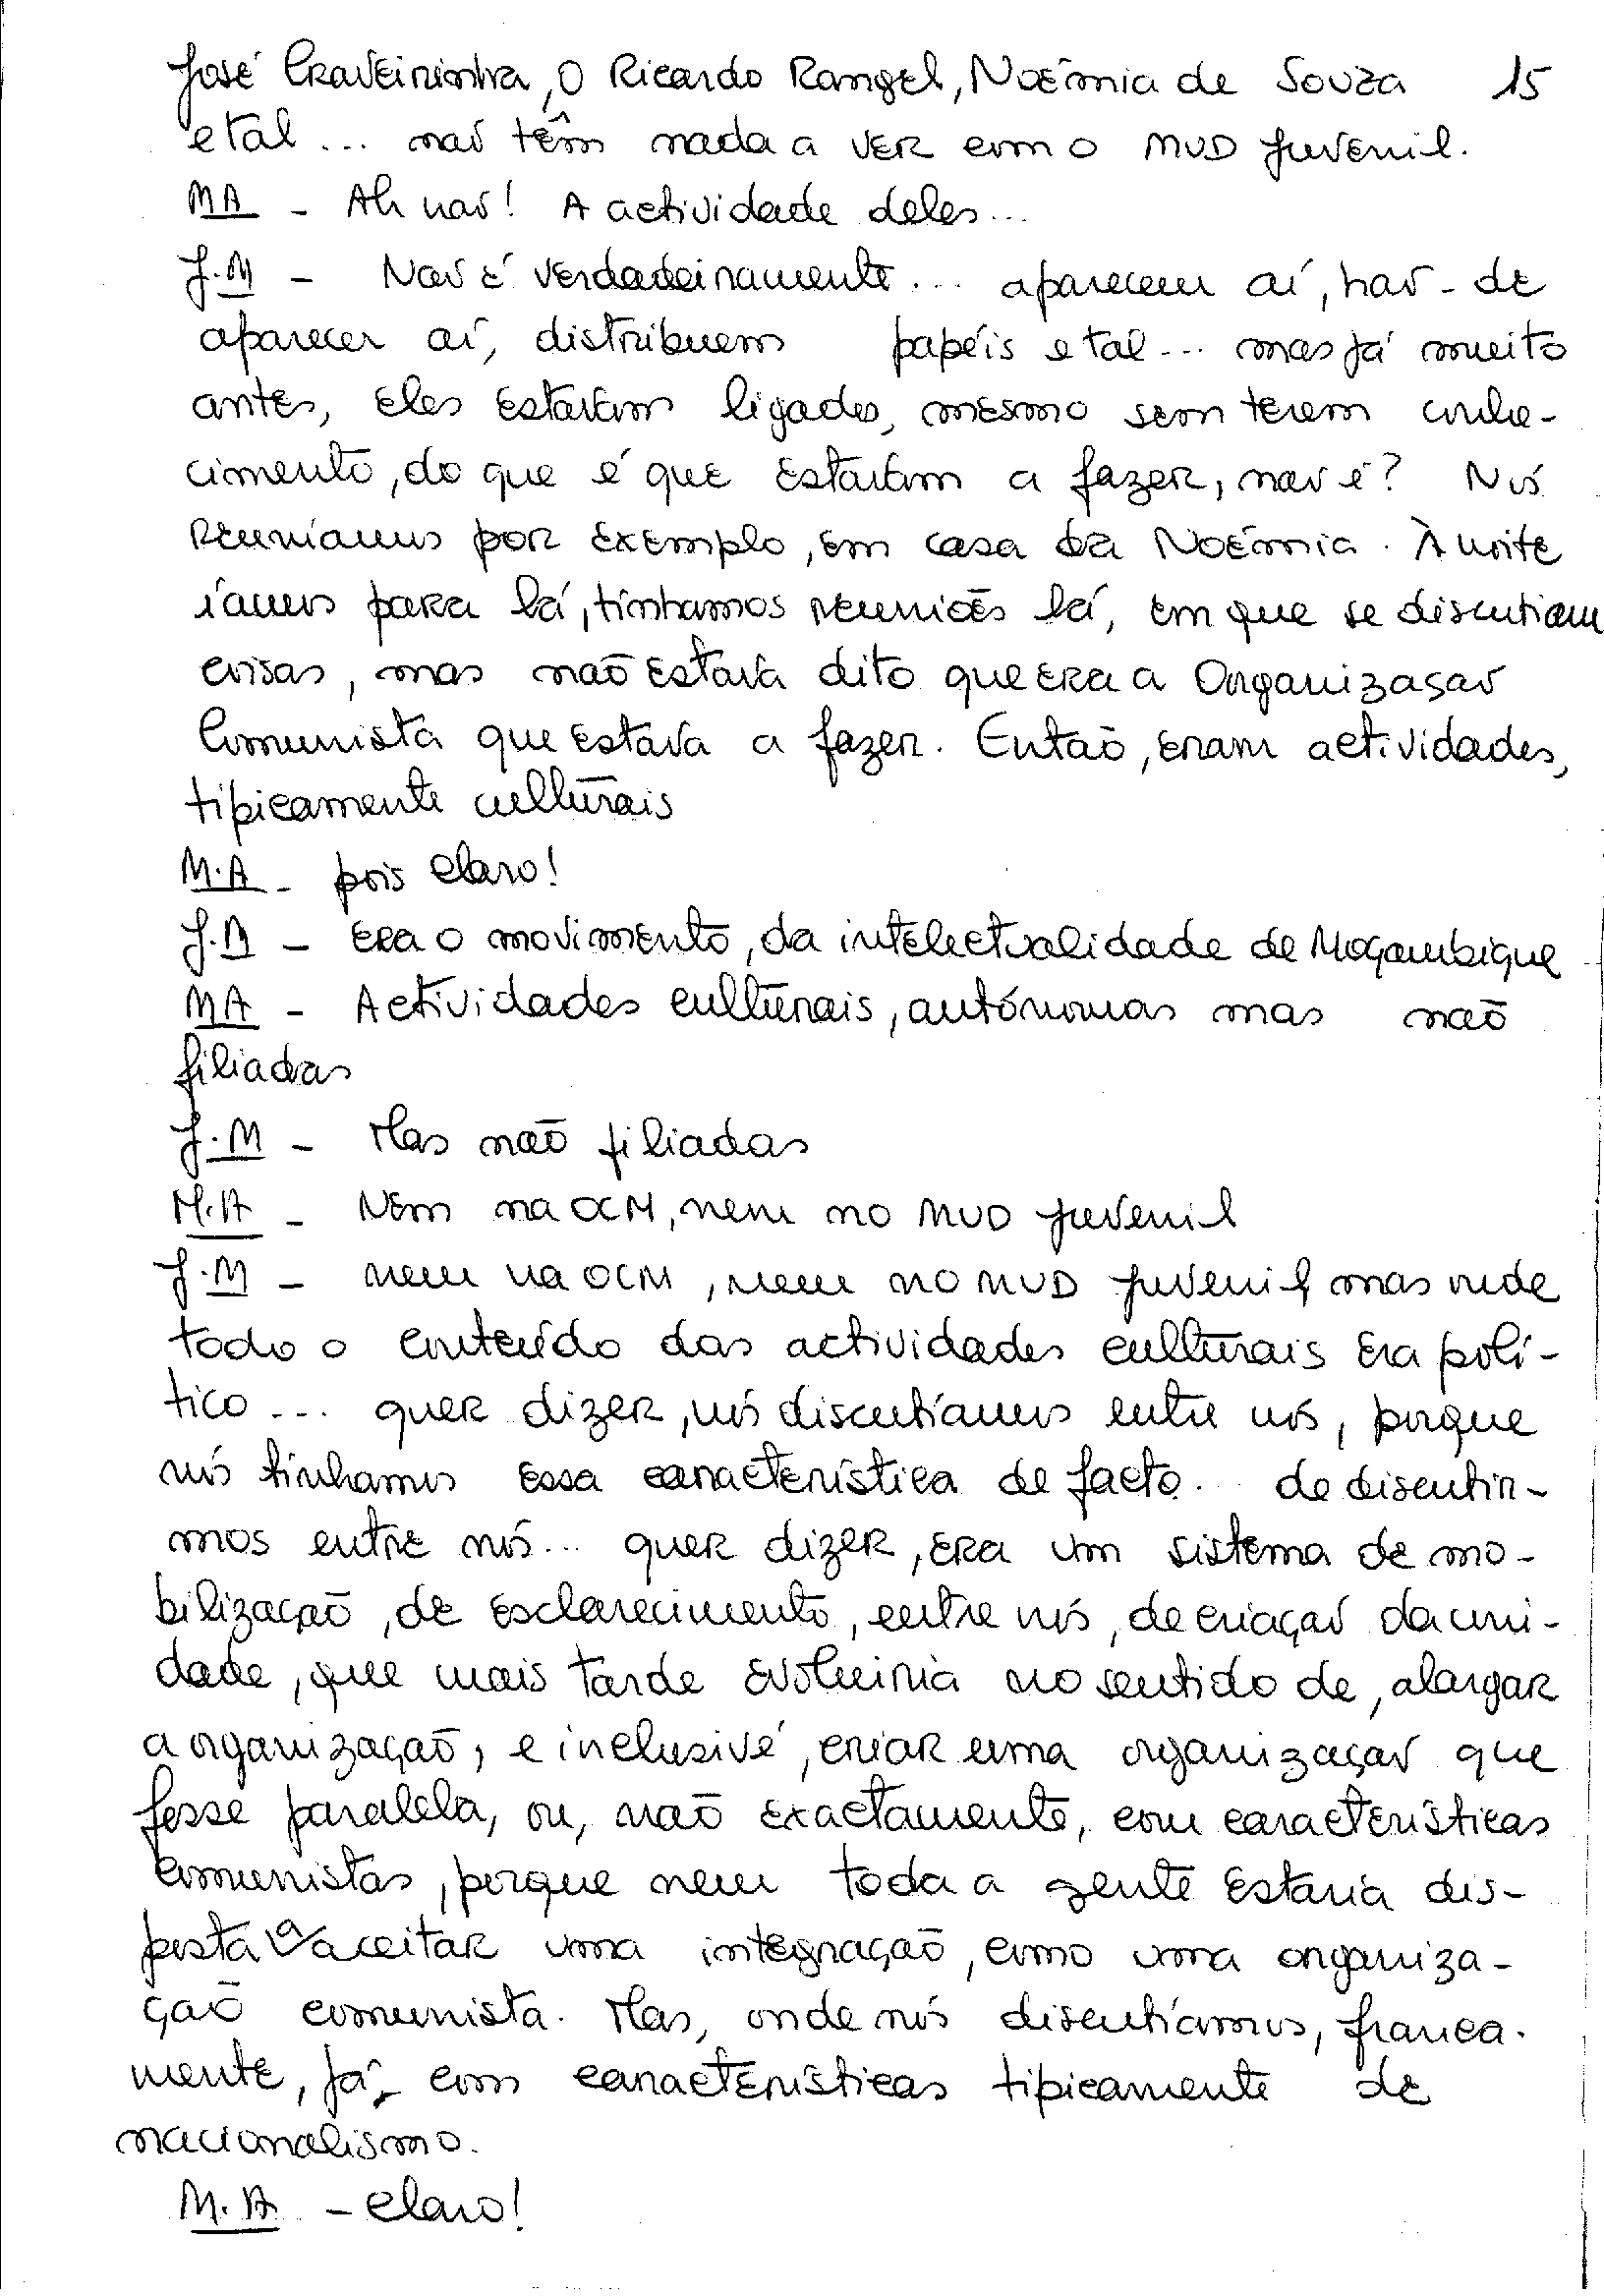 José Craveirinha, O Ricardo Rangel, Noémia de Souza 15
e tal... não têm nada a ver com o MUD juvenil.
MA - Ah não! A actividade deles...
J.M - Não é verdadeiramente... aparecem aí, hão-de
aparecer aí, distribuem papéis e tal... mas já muito
antes, eles estavam ligados, mesmo sem terem conhe-
cimento, do que é que estavam a fazer, não é? Nós
reuníamos por exemplo, em casa da Noémia. À noite
íamos para lá, tínhamos reuniões lá, em que se discutiam
coisas, mas não estava dito que era a Organizasão
Comunista que estava a fazer. Então, eram actividades,
tipicamente culturais
M.A - pois claro!
J.M - Era o movimento, da intelectualidade de Moçambique
MA - Actividades culturais, autónomas mas não
filiadas
J.M - Mas não filiadas
M.A - Nem na OCM, nem no MUD juvenil
J.M - nem na OCM, nem no MUD juvenil, mas onde
todo o conteúdo das actividades culturais era polí-
tico... quer dizer, nós discutíamos entre nós, porque
nós tínhamos essa característica de facto.. de discutir-
mos entre nós... quer dizer, era um sistema de mo-
bilização, de esclarecimento, entre nós, de criação da uni-
dade, que mais tarde evoluiria no sentido de, alargar
a organização, e inclusivé, criar uma organização que
fosse paralela, ou, não exactamente, com características
comunistas, porque nem toda a gente estaria dis-
posta a aceitar uma integração, como uma organiza-
ção comunista. Mas, onde nós discutíamos, franca-
mente, já, com características tipicamente de
nacionalismo.
M.A - claro!